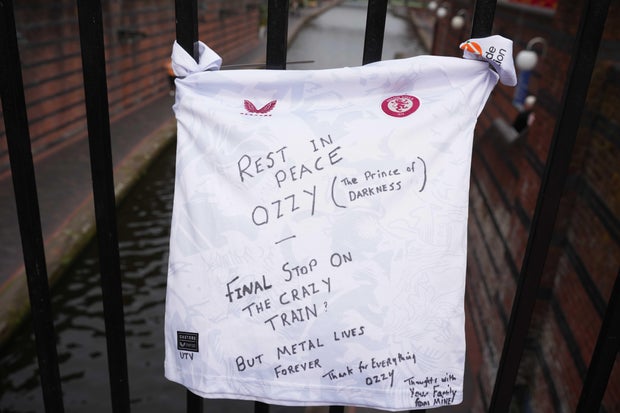 REST IN
PEACE
OZZY (THE PRINCE OF
DARKNESS)
—
FINAL STOP ON
THE CRAZY
TRAIN?
BUT METAL LIVES
FOREVER
Thank for Everything
OZZY
Thoughts with
Your Family
from MINE
UTV